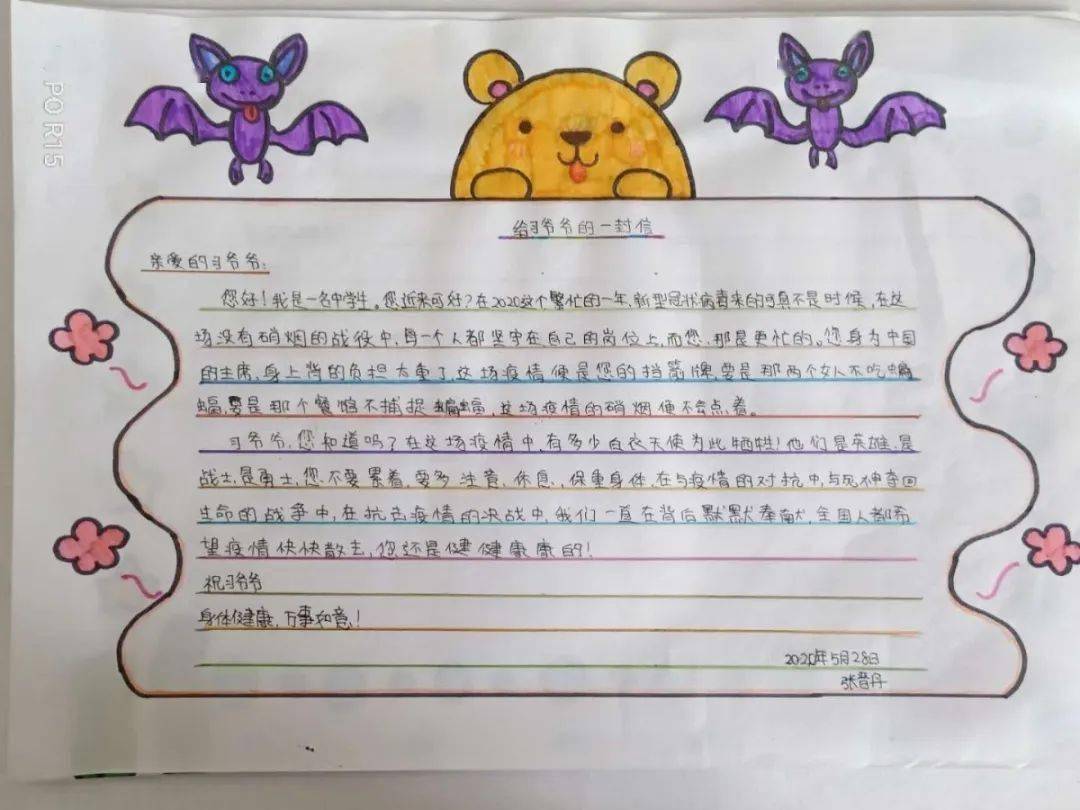 PO R15
给习爷爷的一封信
亲爱的习爷爷:
您好!我是一名中学生。您近来可好?在2020这个繁忙的一年,新型冠状病毒来的可真不是时候,在这
场没有硝烟的战役中,每一个人都坚守在自己的岗位上,而您,那是更忙的。您身为中国
的主席,身上背的负担太重了,这场疫情便是您的挡箭牌,要是那两个女人不吃蝙
蝠,要是那个餐馆不捕捉蝙蝠,这场疫情的硝烟便不会点着。
习爷爷,您知道吗?在这场疫情中,有多少白衣天使为此牺牲!他们是英雄,是
战士,是勇士,您不要累着,要多注意,休息,保重身体,在与疫情的对抗中,与死神夺回
生命的战争中,在抗击疫情的决战中,我们一直在背后默默奉献,全国人都希
望疫情快快散去,您还是健健康康的!
祝习爷爷
身体健康,万事如意!
2020年5月28日
张晋丹